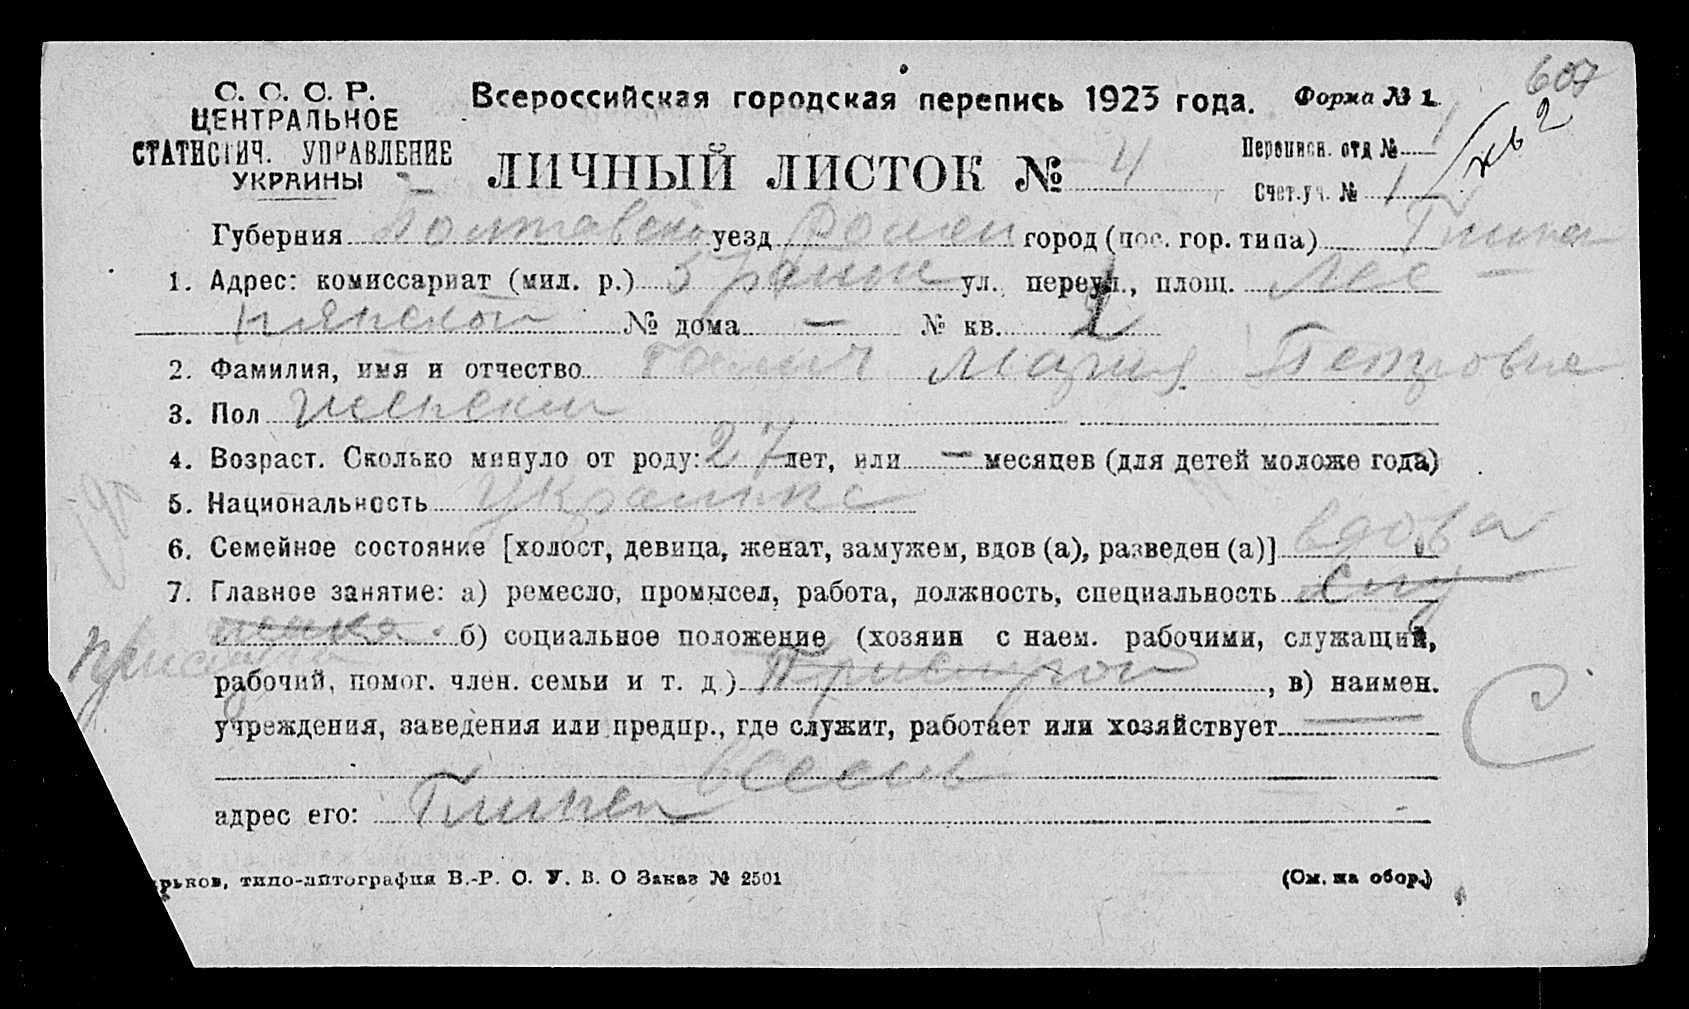 607
С. С. С. Р.
ЦЕНТРАЛЬНОЕ
СТАТИСТИЧ. УПРАВЛЕНИЕ
УКРАИНЫ
Всероссийская городская перепись 1923 года. Форма № 1.
ЛИЧНЫЙ ЛИСТОК № 4
Переписн. отд № 1
Счет.уч. № 1
2
Губерния Полтавско уезд Ромен город (пос. гор. типа)
1. Адрес: комиссариат (мил. р.) ул., переул., площ.
№ дома — № кв. 2
2. Фамилия, имя и отчество Галич Мария Петровна
3. Пол женский
4. Возраст. Сколько минуло от роду: 27 лет, или — месяцев (для детей моложе года)
5. Национальность Украинка
6. Семейное состояние [холост, девица, женат, замужем, вдов (а), разведен (а)] вдова
7. Главное занятие: а) ремесло, промысел, работа, должность, специальность
б) социальное положение (хозяин с наем. рабочими, служащий,
рабочий, помог. член. семьи и т. д.) , в) наимен.
учреждения, заведения или предпр., где служит, работает или хозяйствует
С
адрес его: Глинск
арьков, типо-литография В.-Р. О. У. В. О Заказ № 2501
(См. на обор.)